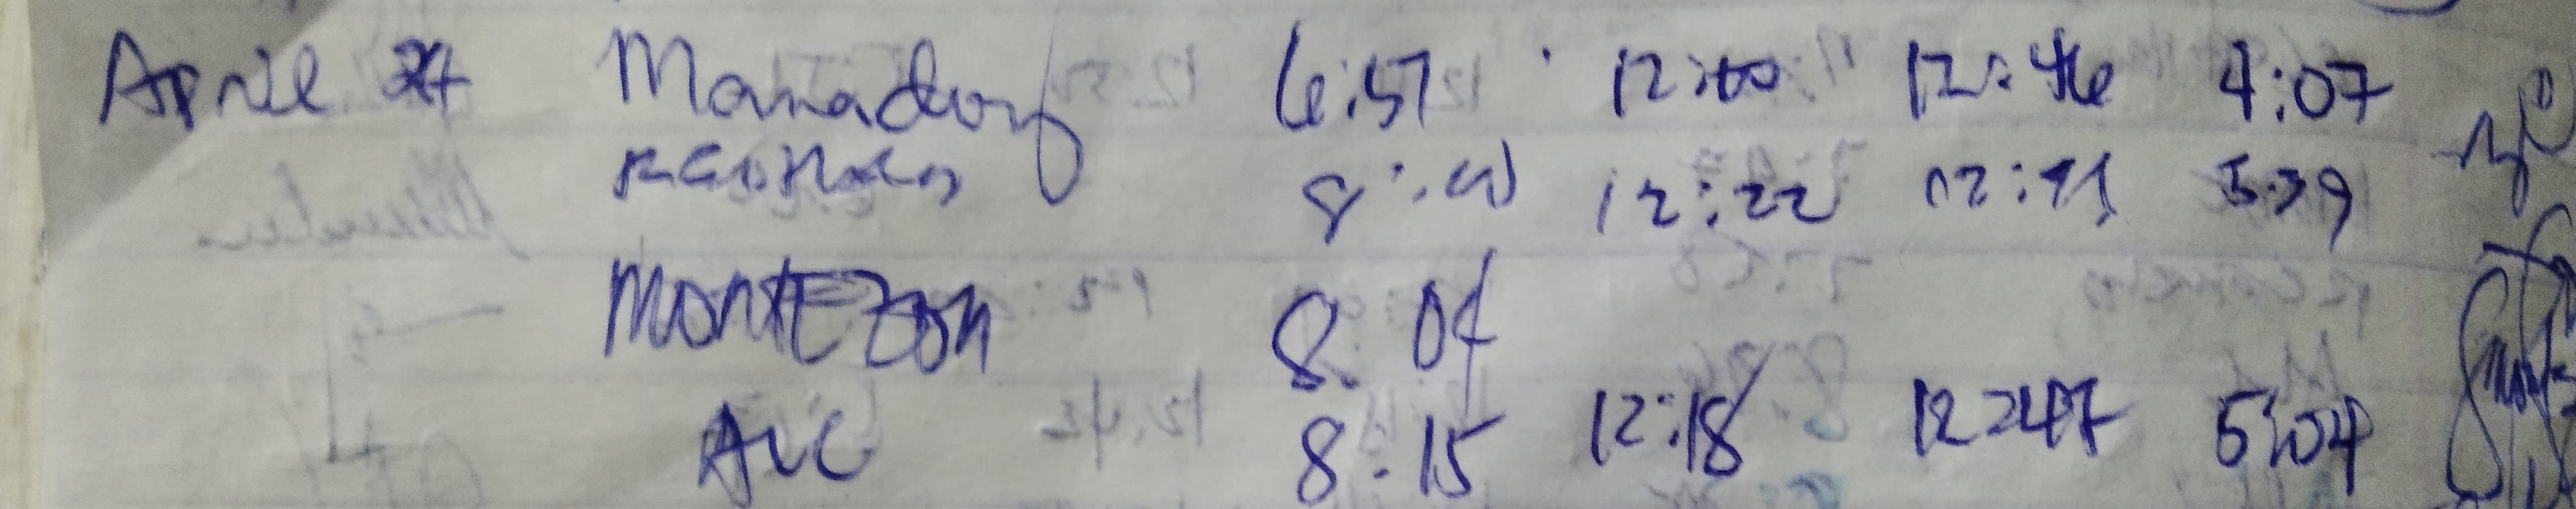 April 24 6:57 12:00 12:46 4:07
8:00 12:22 12:41 5:39
MONTEZON 8:04
AVC 8:15 12:18 12:47 5:04